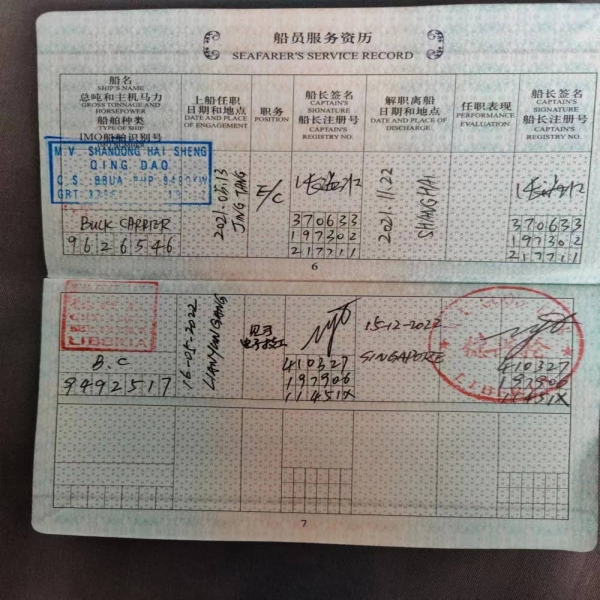 船员服务资历
SEAFARER'S SERVICE RECORD
船名
SHIP'S NAME
总吨和主机马力
GROSS TONNAGE AND
HORSEPOWER
船舶种类
TYPE OF SHIP
IMO船舶识别号
上船任职
日期和地点
DATE AND PLACE
OF ENGAGEMENT
职务
POSITION
船长签名
CAPTAIN'S
SIGNATURE
船长注册号
CAPTAIN'S
REGISTRY NO.
解职离船
日期和地点
DATE AND PLACE OF
DISCHARGE
任职表现
PERFORMANCE
EVALUATION
船长签名
CAPTAIN'S
SIGNATURE
船长注册号
CAPTAIN'S
REGISTRY NO.
M.V. SHANDONG HAI SHENG
QING DAO
C.S. BBUA
GRT
BULK CARRIER
9626546
2021.05.13
JING TANG
E/C
370633
197302
217711
2021.11.22
SHANG HAI
370633
197302
217711
6
LIBERIA
B.C
9492517
16-01-2022
LIANYUNGANG
见习
电子技工
410327
197906
11451X
15-12-2022
SINGAPORE
410327
197906
11451X
7